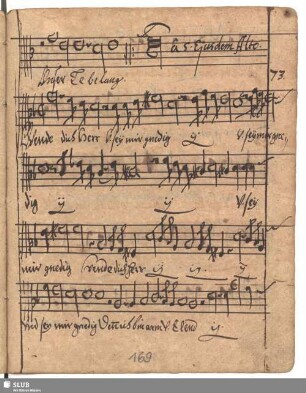 â 5. Ejusdem Alto
73.
Wende dich Herr V. sey mir gnedig ij V. sey mir gne-
dig ij ij V. sey
mir gnedig Wende dich Herr ij ij ij
und sey mir gnedig Denn ich bin arm V. Elend ij
169
SLUB